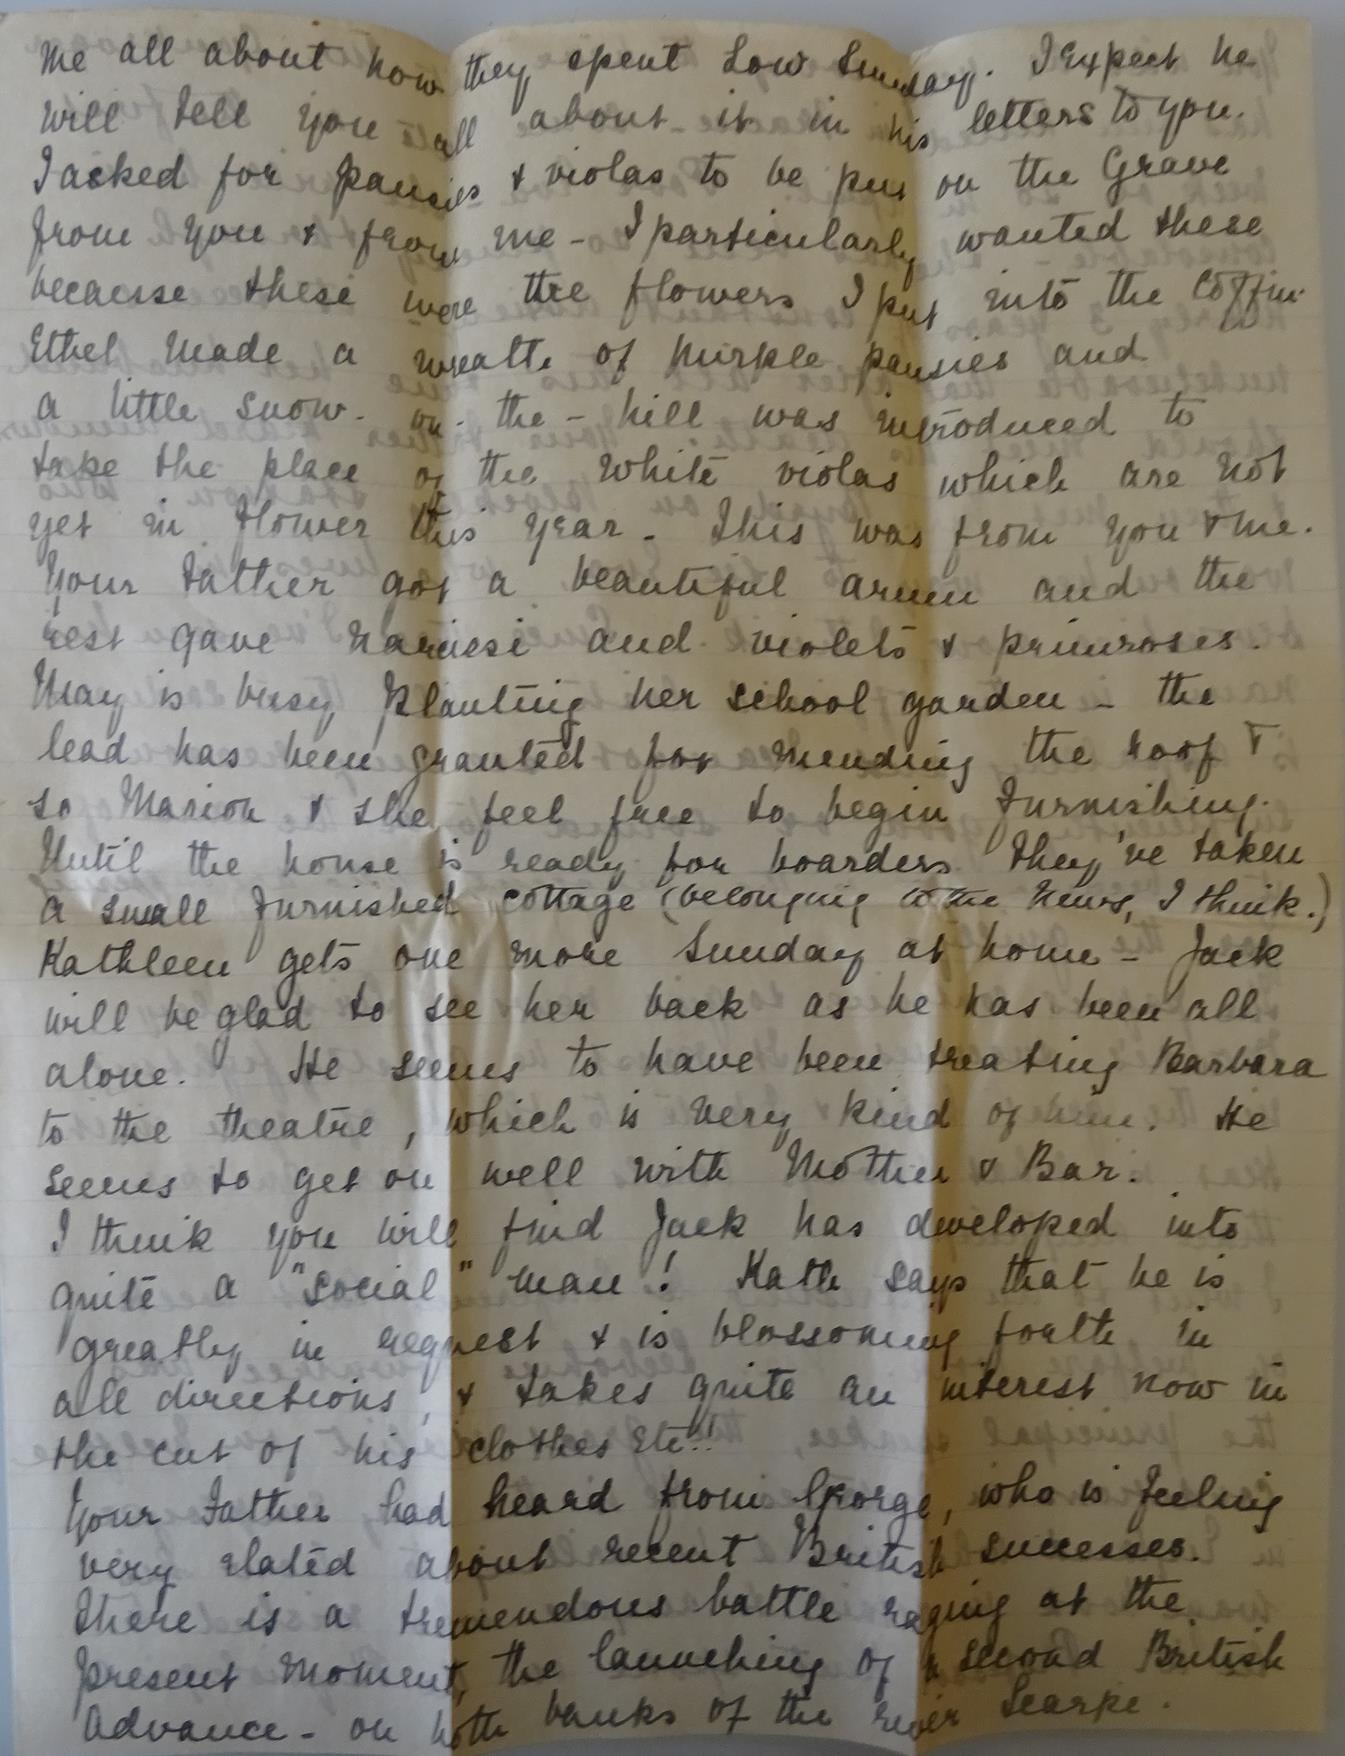 me all about how they spent Low Sunday. I expect he
will tell you all about it in his letters to you.
I asked for pansies & violas to be put on the Grave
from you & from me - I particularly wanted these
because these were the flowers I put into the coffin.
Ethel made a wreath of purple pansies and
a little snow-on-the-hill was introduced to
take the place of the white violas which are not
yet in flower this year. This was from you & me.
Your Father got a beautiful arum and the
rest gave narcissi and violets & primroses.
May is busy planting her school garden - the
lead has been granted for mending the roof &
so Marion & she feel free to begin furnishing.
Until the house is ready for boarders they've taken
a small furnished cottage (belonging to the News, I think.)
Kathleen gets one more Sunday at home - Jack
will be glad to see her back as he has been all
alone. He seems to have been treating Barbara
to the theatre, which is very kind of him. He
seems to get on well with Mother & Bar.
I think you will find Jack has developed into
quite a "social" man! Kath says that he is
greatly in request & is blossoming forth in
all directions, & takes quite an interest now in
the cut of his clothes etc!!
Your Father had heard from George, who is feeling
very elated about recent British successes.
There is a tremendous battle raging at the
present moment, the launching of a second British
Advance - on both banks of the river Scarpe.